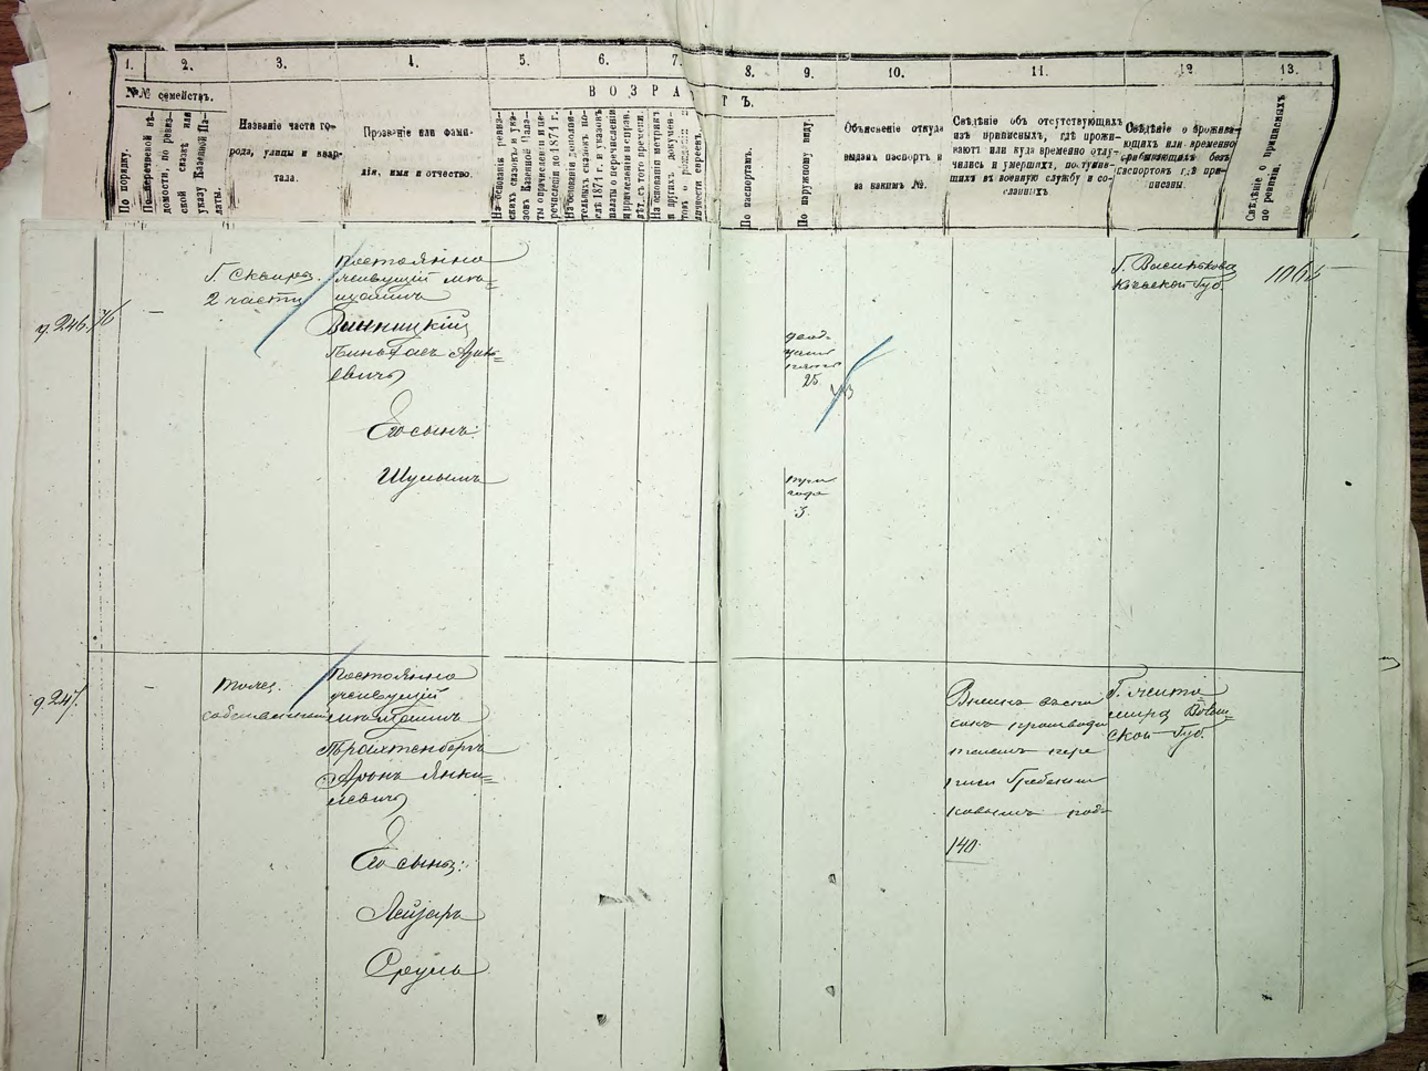 1. 2. 3. 4. 5. 6. 7. 8. 9. 10. 11. 12 13.
№№ семействъ.
ВОЗРАСТЪ.
По порядку.
По перечневой вѣ-
домости, по ревиз-
ской сказкѣ или
указу Казенной Па-
латы.
Названіе части го-
рода, улицы и квар-
тала.
Прозваніе или фами-
лія, имя и отчество.
На основаніи ревиз-
скихъ сказокъ и ука-
зовъ Казенной Пала-
ты о причисленіи и пе-
речисленіи до 1874 г.
На основаніи дополни-
тельныхъ сказокъ по-
слѣ 1874 г. и указовъ
палаты о перечисленіи
На основаніи метрикъ
и другихъ докумен-
товъ о рожденіи и
личности евреевъ.
По паспортамъ.
По наружному виду.
Объясненіе откуда
выданъ паспортъ и
за какимъ №.
Свѣдѣніе объ отсутствующихъ
изъ приписныхъ, гдѣ прожи-
ваютъ или куда временно отлу-
чились и умершихъ, поступив-
шихъ въ военную службу и со-
сланныхъ
Свѣдѣніе о прожива-
ющихъ или временно
пребывающихъ безъ
паспортовъ гдѣ при-
писаны.
Свѣдѣніе о приписныхъ
по ревизіи.
ч. 246. 76
—
Г. Сквира.
2 части
Постоянно
живущій мѣ-
щанинъ
Винницкій
Пинхасъ
евичъ
Его сынъ:
Шулимъ
двад-
цать
пять
25
три
года
3.
Г. Василькова
Кіевской Губ.
1064
ч. 247.
—
Тоже.
Постоянно
живущій
мѣщанинъ
Трахтенбергъ
Аронъ Янке-
левичъ
Его сыны:
Лейзаръ
Сруль
Внесенъ въ спи
сокъ производи
пере
писи
подъ
140.
Г. Жито
мира Волын-
ской Губ.